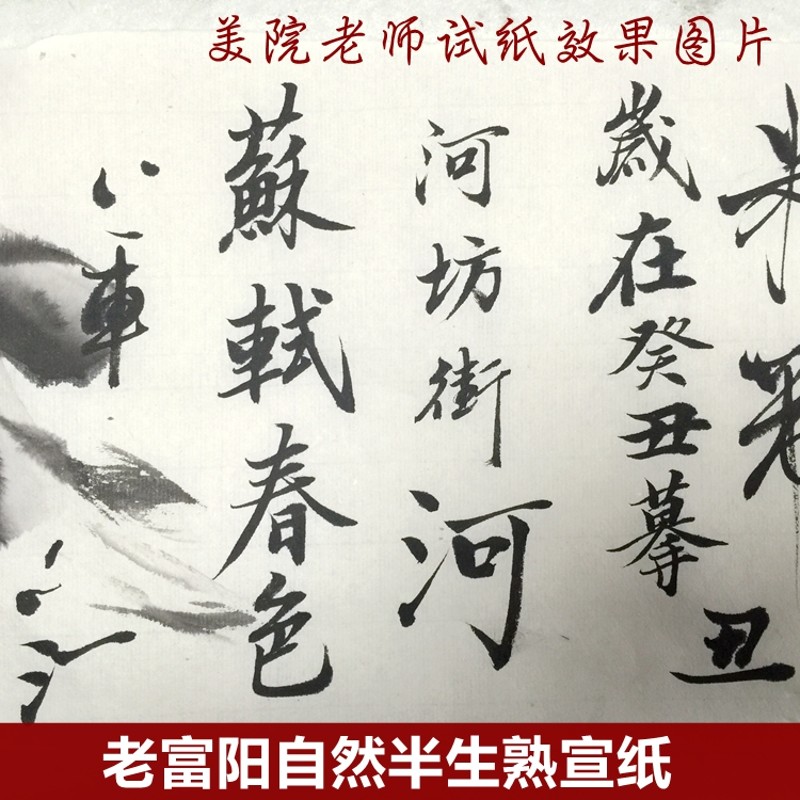 美院老师试纸效果图片
丑
歲在癸丑摹
河坊街河
蘇軾春色
車
老富阳自然半生熟宣纸